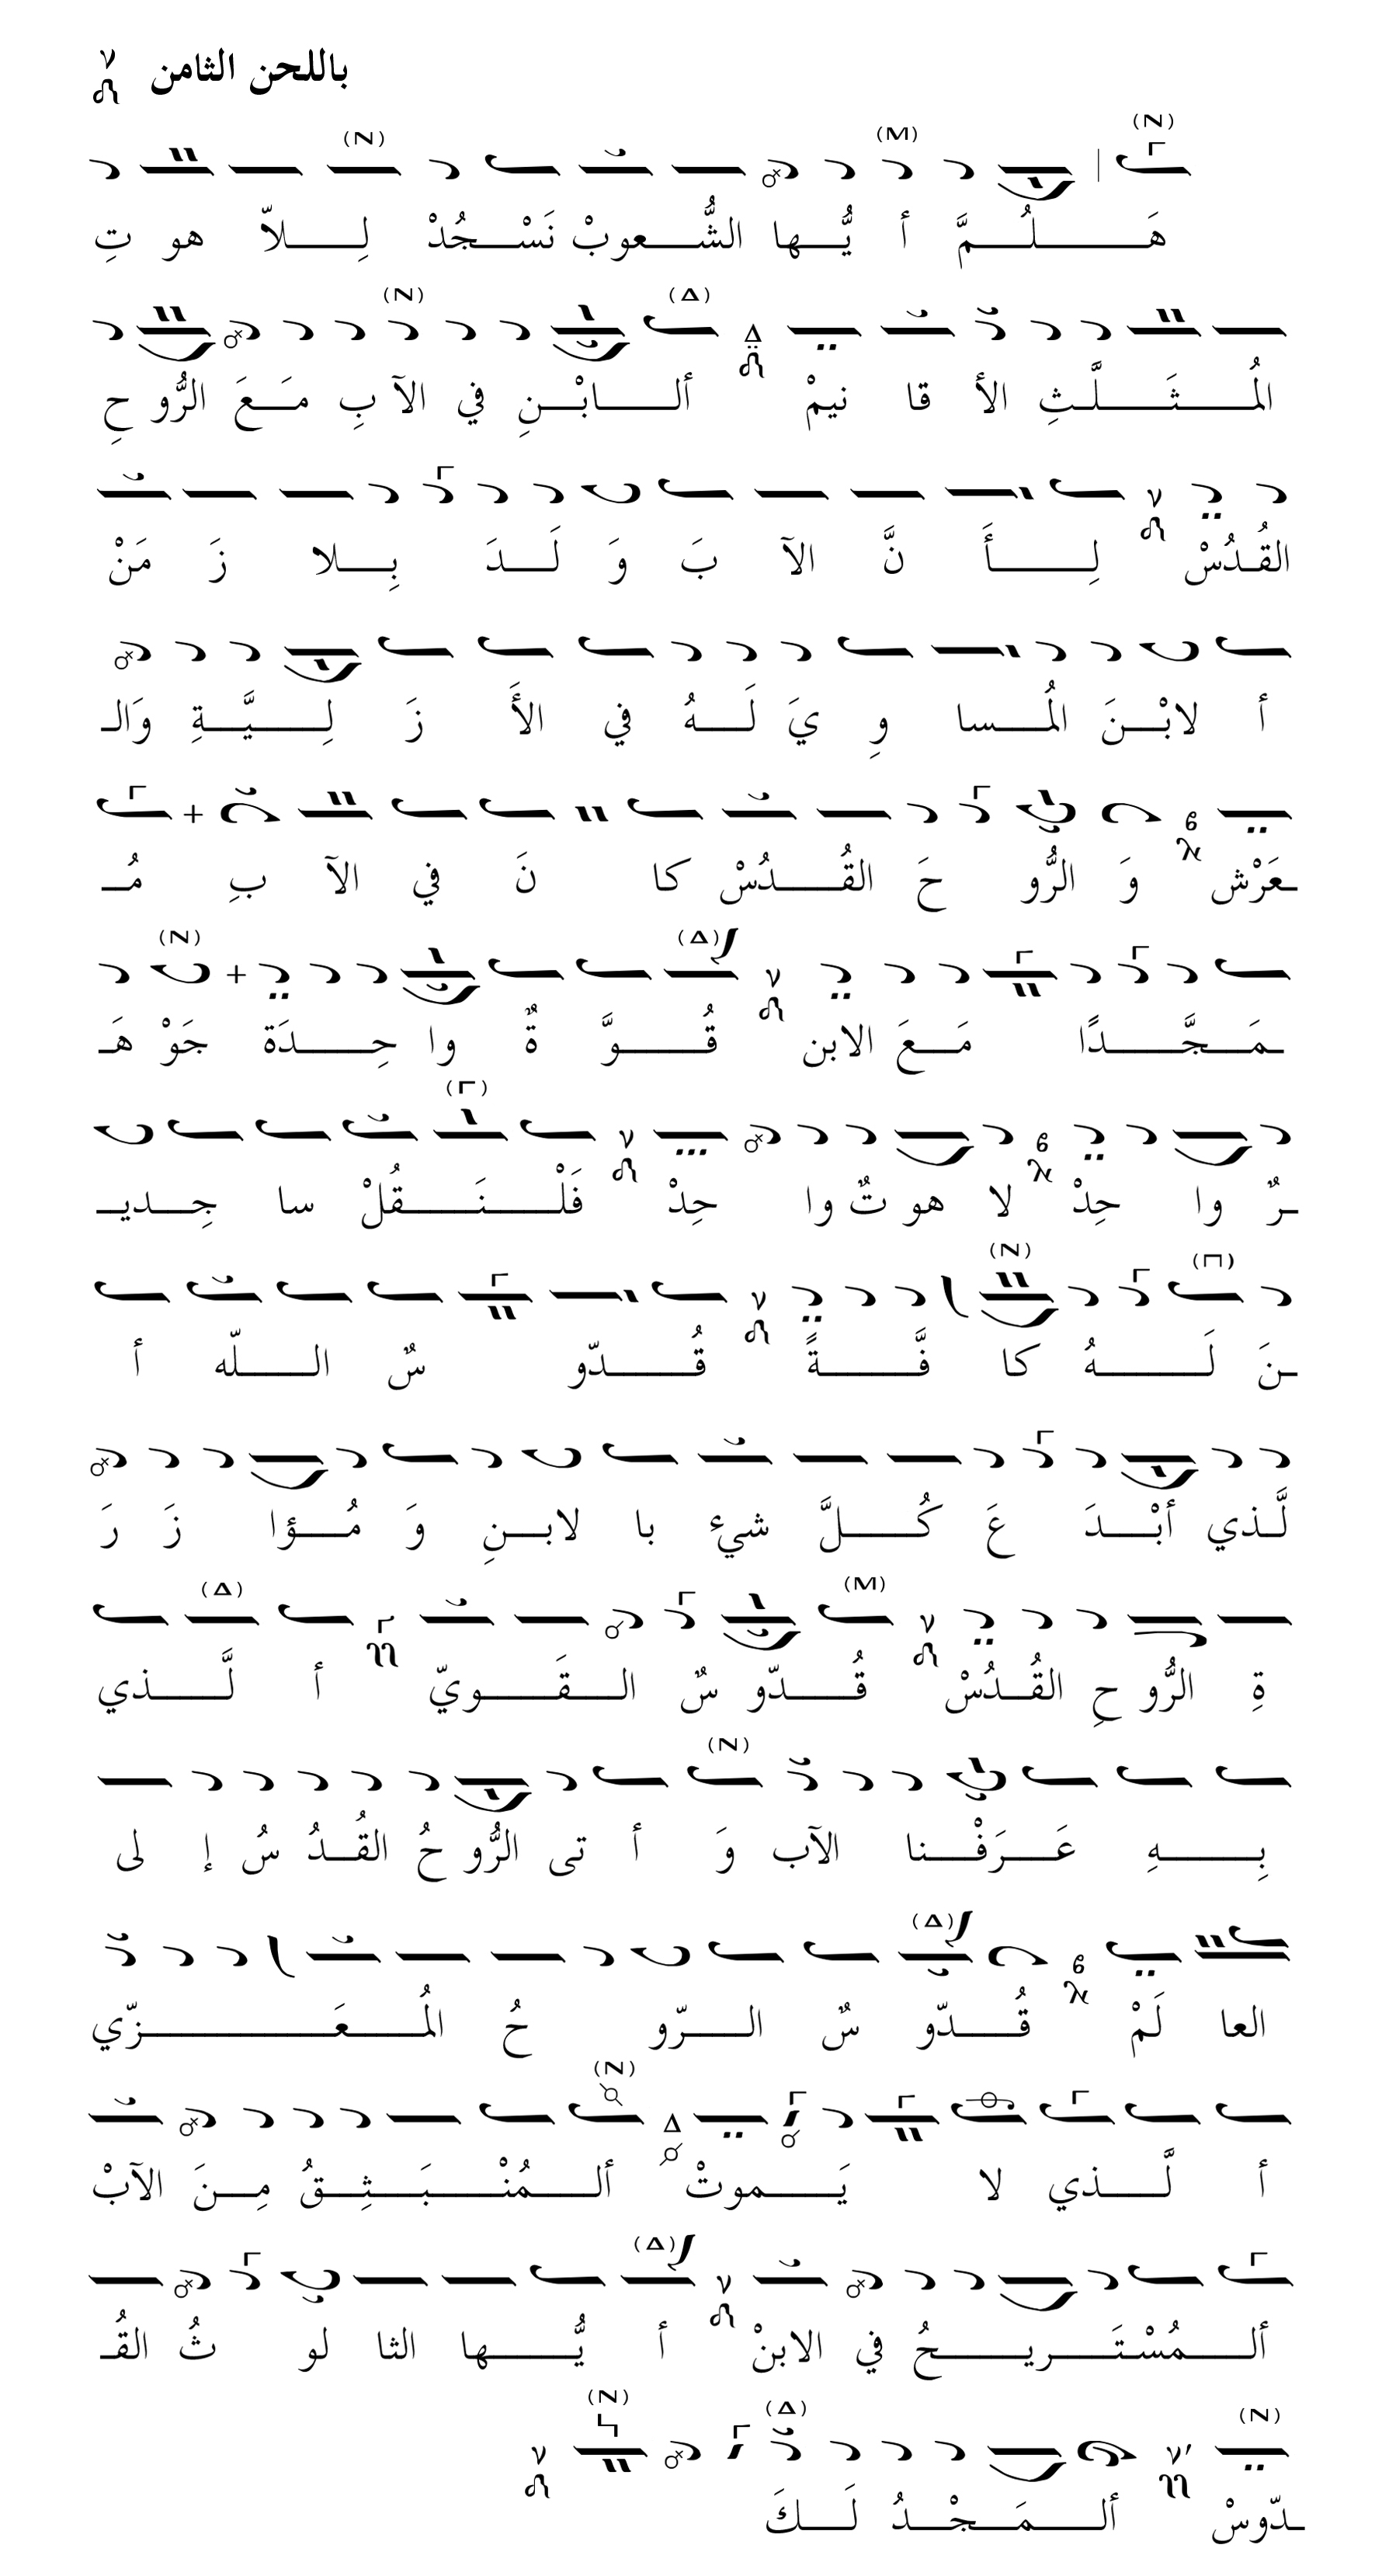 باللحن الثامن
هَـلُـمَّ أ يُّـها الشُّـعوبْ نَسْـجُدْ لِـلاّ هو تِ
المُـثَـلَّـثِ الأ قا نيمْ ألـابْـنِ في الآ بِ مَـعَ الرُّو حِ
القُـدُسْ لِـأَ نَّ الآ بَ وَ لَـدَ بِـلا زَ مَنْ
أ لابْـنَ المُـسا وِ يَ لَـهُ في الأَ زَ لِـيَّـةِ وَالـ
ـعَرْش وَ الرُّو حَ القُـدُسْ كا نَ في الآ بِ مُـ
ـمَـجَّـدًا مَـعَ الابن قُـوَّ ةٌ وا حِـدَة جَوْ هَـ
ـرٌ وا حِدْ لا هو تٌ وا حِدْ فَلْـنَـقُلْ سا جِـديـ
ـنَ لَـهُ كا فَّـةً قُـدّو سٌ الـلّه أ
لَّـذي أبْـدَ عَ كُـلَّ شيءٍ با لابـنِ وَ مُـؤا زَ رَ
ةِ الرُّو حِ القُـدُسْ قُـدّو سٌ الـقَـويّ أ لَّـذي
بِـهِ عَـرَفْـنا الآب وَ أ تى الرُّو حُ القُـدُ سُ إ لى
العا لَمْ قُـدّو سٌ الـرّو حُ المُـعَـزّي
أ لَّـذي لا يَـموتْ ألـمُنْـبَـثِـقُ مِـنَ الآبْ
ألـمُسْـتَـريـحُ في الابنْ أ يُّـها الثا لو ثُ القُـ
ـدّوسْ ألـمَـجْـدُ لَـكَ